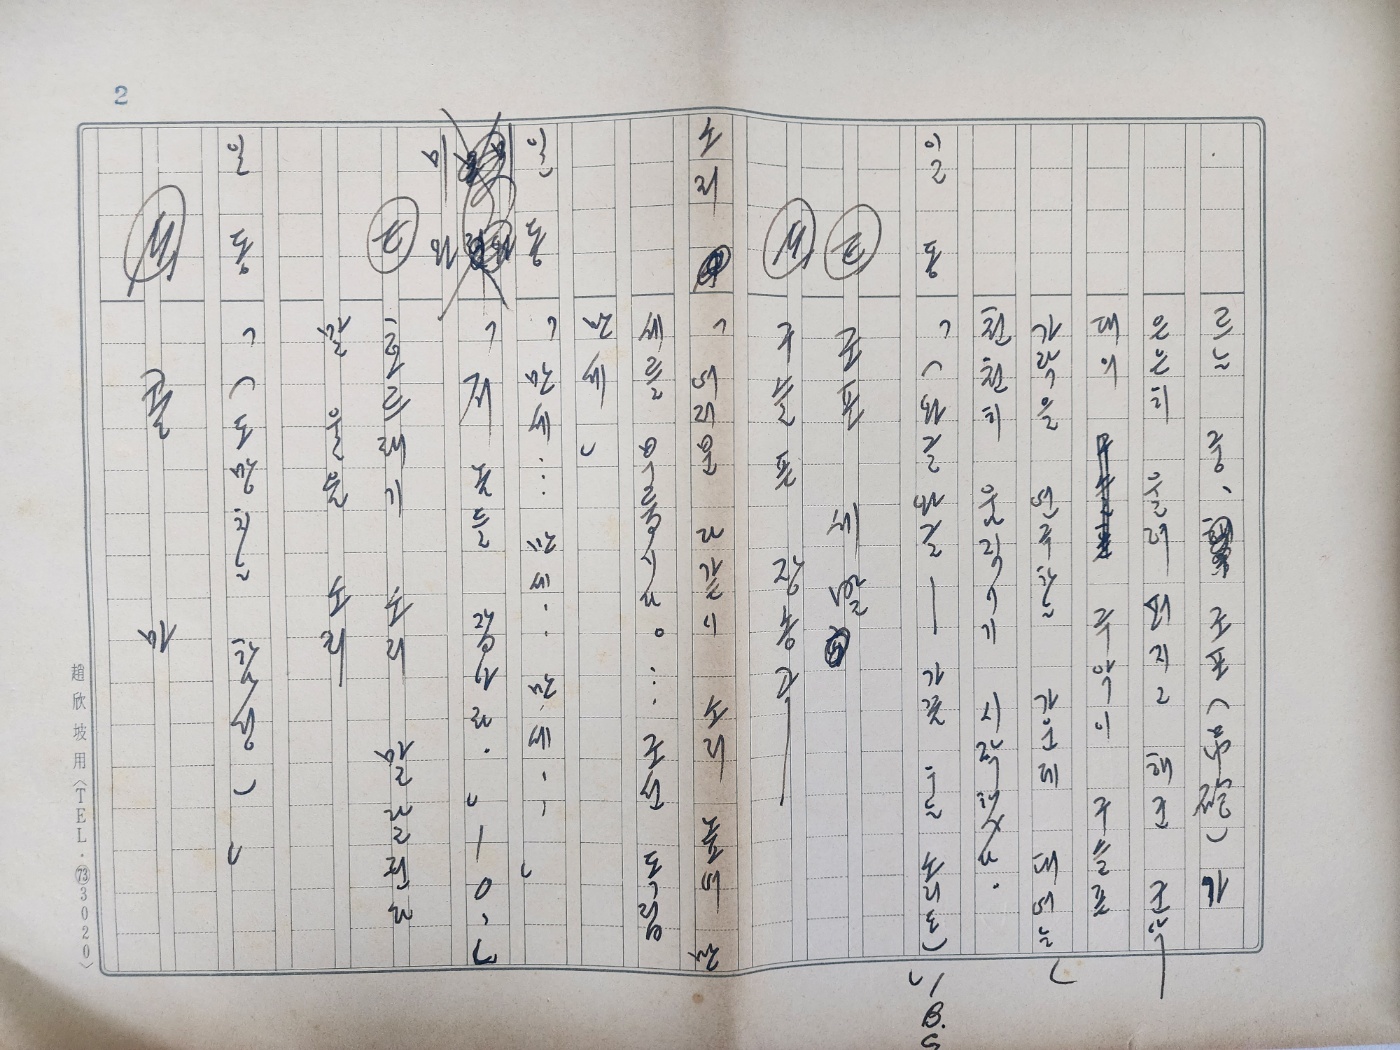 2
르는 중、 조포(弔砲)가
은은히 울려 퍼지고 해군 군악
대의 주악이 구슬픈
가락을 연주하는 가운데 대여는
천천히 움직이기 시작했다.
일동 「(와글와글 — 가끔 우는 소리도)」 B.G
Ⓔ 조포 세 발
Ⓜ 구슬픈 장송곡—
소리 「여러분 다같이 소리 높여 만
세를 부릅시다。…… 조선 독립
만세」
일동 「만세… 만세.. 만세..」
「저 놈들 잡아라.」
Ⓔ 호르래기 소리
소리
일동 「(도망치는 함성)」
Ⓜ
趙欣坡用〈TEL・㊆3020〉